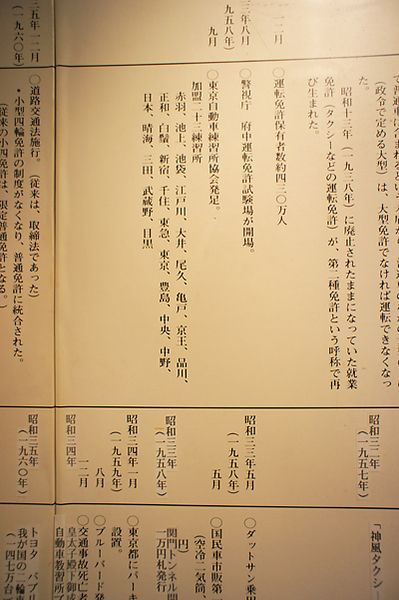 て普通車に含まれ
（政令で定める大型）は、大型免許でなければ運転できなくなっ
た。
昭和十三年（一九三八年）に廃止されたままになっていた就業
免許（タクシーなどの運転免許）が、第二種免許という呼称で再
び生まれた。
一二月
三年八月
九五八年）
九月
〇運転免許保有者数約四三〇万人
〇警視庁 府中運転免許試験場が開場。
〇東京自動車練習所協会発足。
加盟二十三練習所
赤羽、池上、池袋、江戸川、大井、尾久、亀戸、京王、品川、
正和、白鬚、新宿、千住、東急、東京、豊島、中央、中野、
日本、晴海、三田、武蔵野、目黒
三五年一二月
（一九六〇年）
〇道路交通法施行。（従来は、取締法であった）
・小型四輪免許の制度がなくなり、普通免許に統合された。
（従来の小四免許は、限定普通免許となる。）
昭和三二年
（一九五七年）
昭和三三年五月
（一九五八年）
五月
昭和三三年
（一九五八年）
昭和三四年一月
（一九五九年）
八月
一二月
昭和三四年
昭和三五年
（一九六〇年）
「神風タクシ
〇ダットサン乗用
〇国民車市販第
（空冷二気筒、
円）
関門トンネル開
一万円札発行
〇東京都にパーキ
設置。
〇ブルーバード発
〇交通事故死亡
皇太子殿下御
自動車教習所
トヨタ パブリ
我が国の二輪車
（一四七万台）